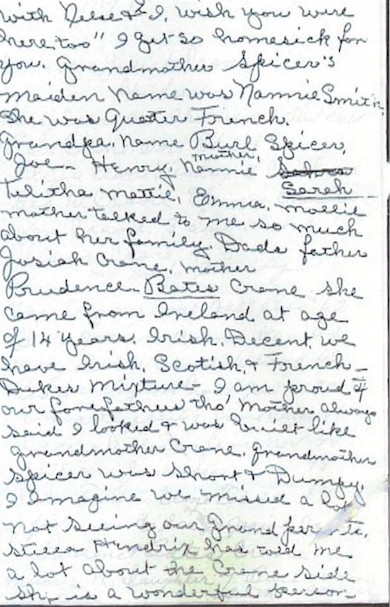 with Nelse & I, wish you were
here, too" I get so homesick for
you. Grandmother Spicer's
maiden Name was Nannie Smith.
She was Quater French.
Grandpa, Name Burl Spicer,
Joe - Henry, Mother, Nannie
Sarah
Telitha Mattie, Emma, Mollie
Mother talked to me so much
about her family. Dads father
Josiah Crane, mother
Prudence Bates Crane she
came from Ireland at age
of 14 years. Irish, Decent, we
have Irish, Scotish, & French -
Dukes Mixture - I am proud of
our forefathers tho' Mother always
said I looked & was built like
Grandmother Crane. Grandmother
Spicer was short & Dumpy.
I Imagine we missed a lot
not seeing our Grand parents,
Stella Hendrix has told me
a lot about the Crane side
She is a wonderful person